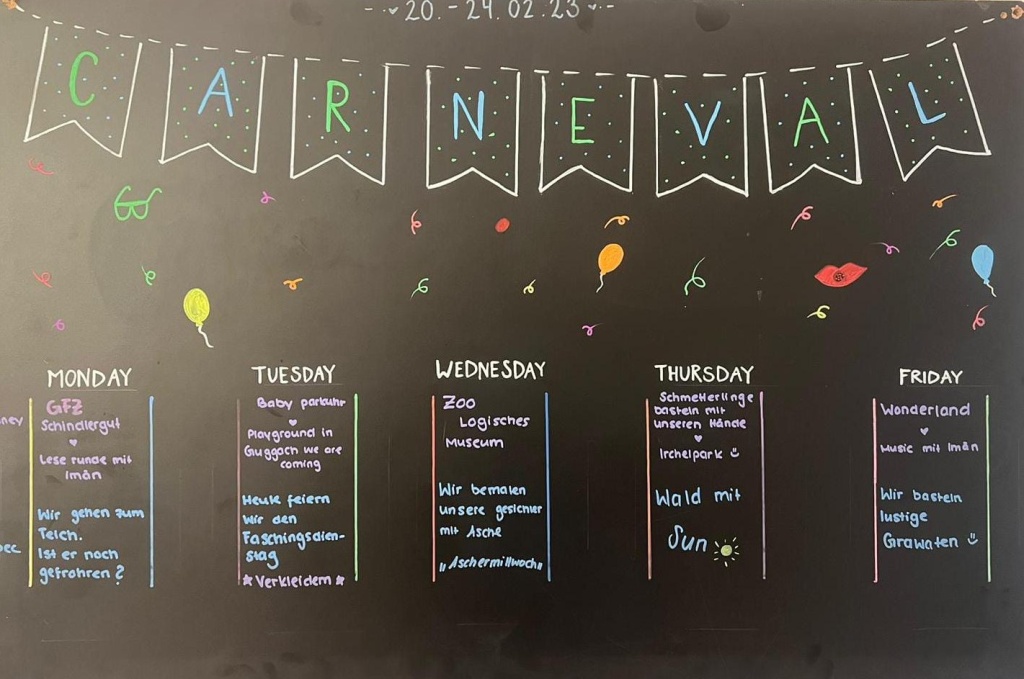 20.-24.02.23
CARNEVAL
MONDAY
ney
GFZ
Schindlergut
Lese runde mit
Imân
Wir gehen zum
Teich.
Ist er noch
gefrohren?
TUESDAY
Baby parkuhr
Playground in
Guggach we are
coming
Heute feiern
Wir den
Faschingsdien-
stag
Verkleidern
WEDNESDAY
ZOO
Logisches
Museum
Wir bemalen
unsere gesichter
mit Asche
"Aschermittwoch"
THURSDAY
Schmetterlinge
basteln mit
unseren Hände
Irchelpark
Wald mit
Sun
FRIDAY
Wonderland
Music mit Imân
Wir basteln
lustige
Grawaten